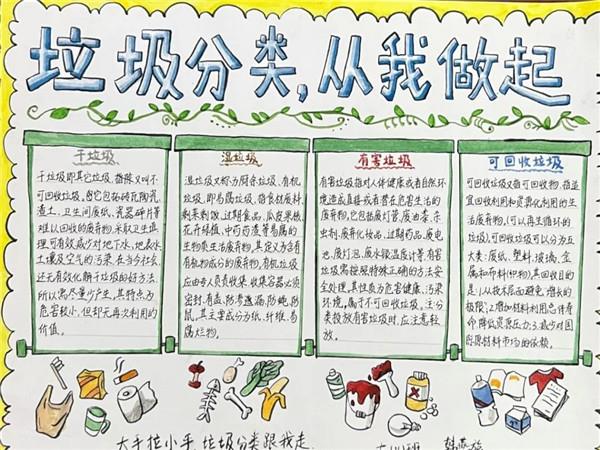 垃圾分类,从我做起
干垃圾
干垃圾即其它垃圾,指除又叫不
可回收垃圾。它包括砖瓦陶瓷,
渣土,卫生间废纸,瓷器碎片等
难以回收的废弃物,采取卫生填
埋可有效减少对地下水,地表水
土壤及空气的污染。在当今社会,
还无有效化解干垃圾的好方法,
所以需尽量少产生,其特点为
危害较小,但却无再次利用的
价值。
湿垃圾
湿垃圾又称为厨余垃圾、有机
垃圾,即易腐垃圾,指食材废料
剩菜剩饭,过期食品,瓜皮果核
花卉绿植,中药药渣等易腐的
生物质生活废弃物,其定义为含有
有机物成分的废弃物,有机垃圾
应由专人负责收集,收集容器必须
密封,有盖,防渗遗漏,防蝇,防
鼠,其主要成分为纸、纤维、易
腐烂物。
有害垃圾
有害垃圾指对人体健康或者自然环
境造成直接或者潜在危害生活的
废弃物,它包括废灯管,废油漆,杀
虫剂,废弃化妆品,过期药品,废电
池,废灯泡,废水银温度计等,有害
垃圾需按照特殊正确的方法安
全处理,其性质为危害健康、污染
环境,属于不可回收垃圾,主分
类投放有害垃圾时,应注意轻
放。
可回收垃圾
可回收垃圾又指可回收物,指适
宜回收利用和资源化利用的生
活废弃物,(可以再生循环的
垃圾),可回收垃圾可以分为五
大类:废纸,塑料,玻璃,金
属和布料(织物),其回收目的
是:1.从技术层面避免,增长的
极限;2.增加材料利用总体寿
命降低资源压力;3.减少对固
资源材料市场的依赖。
大手拉小手,垃圾分类跟我走.